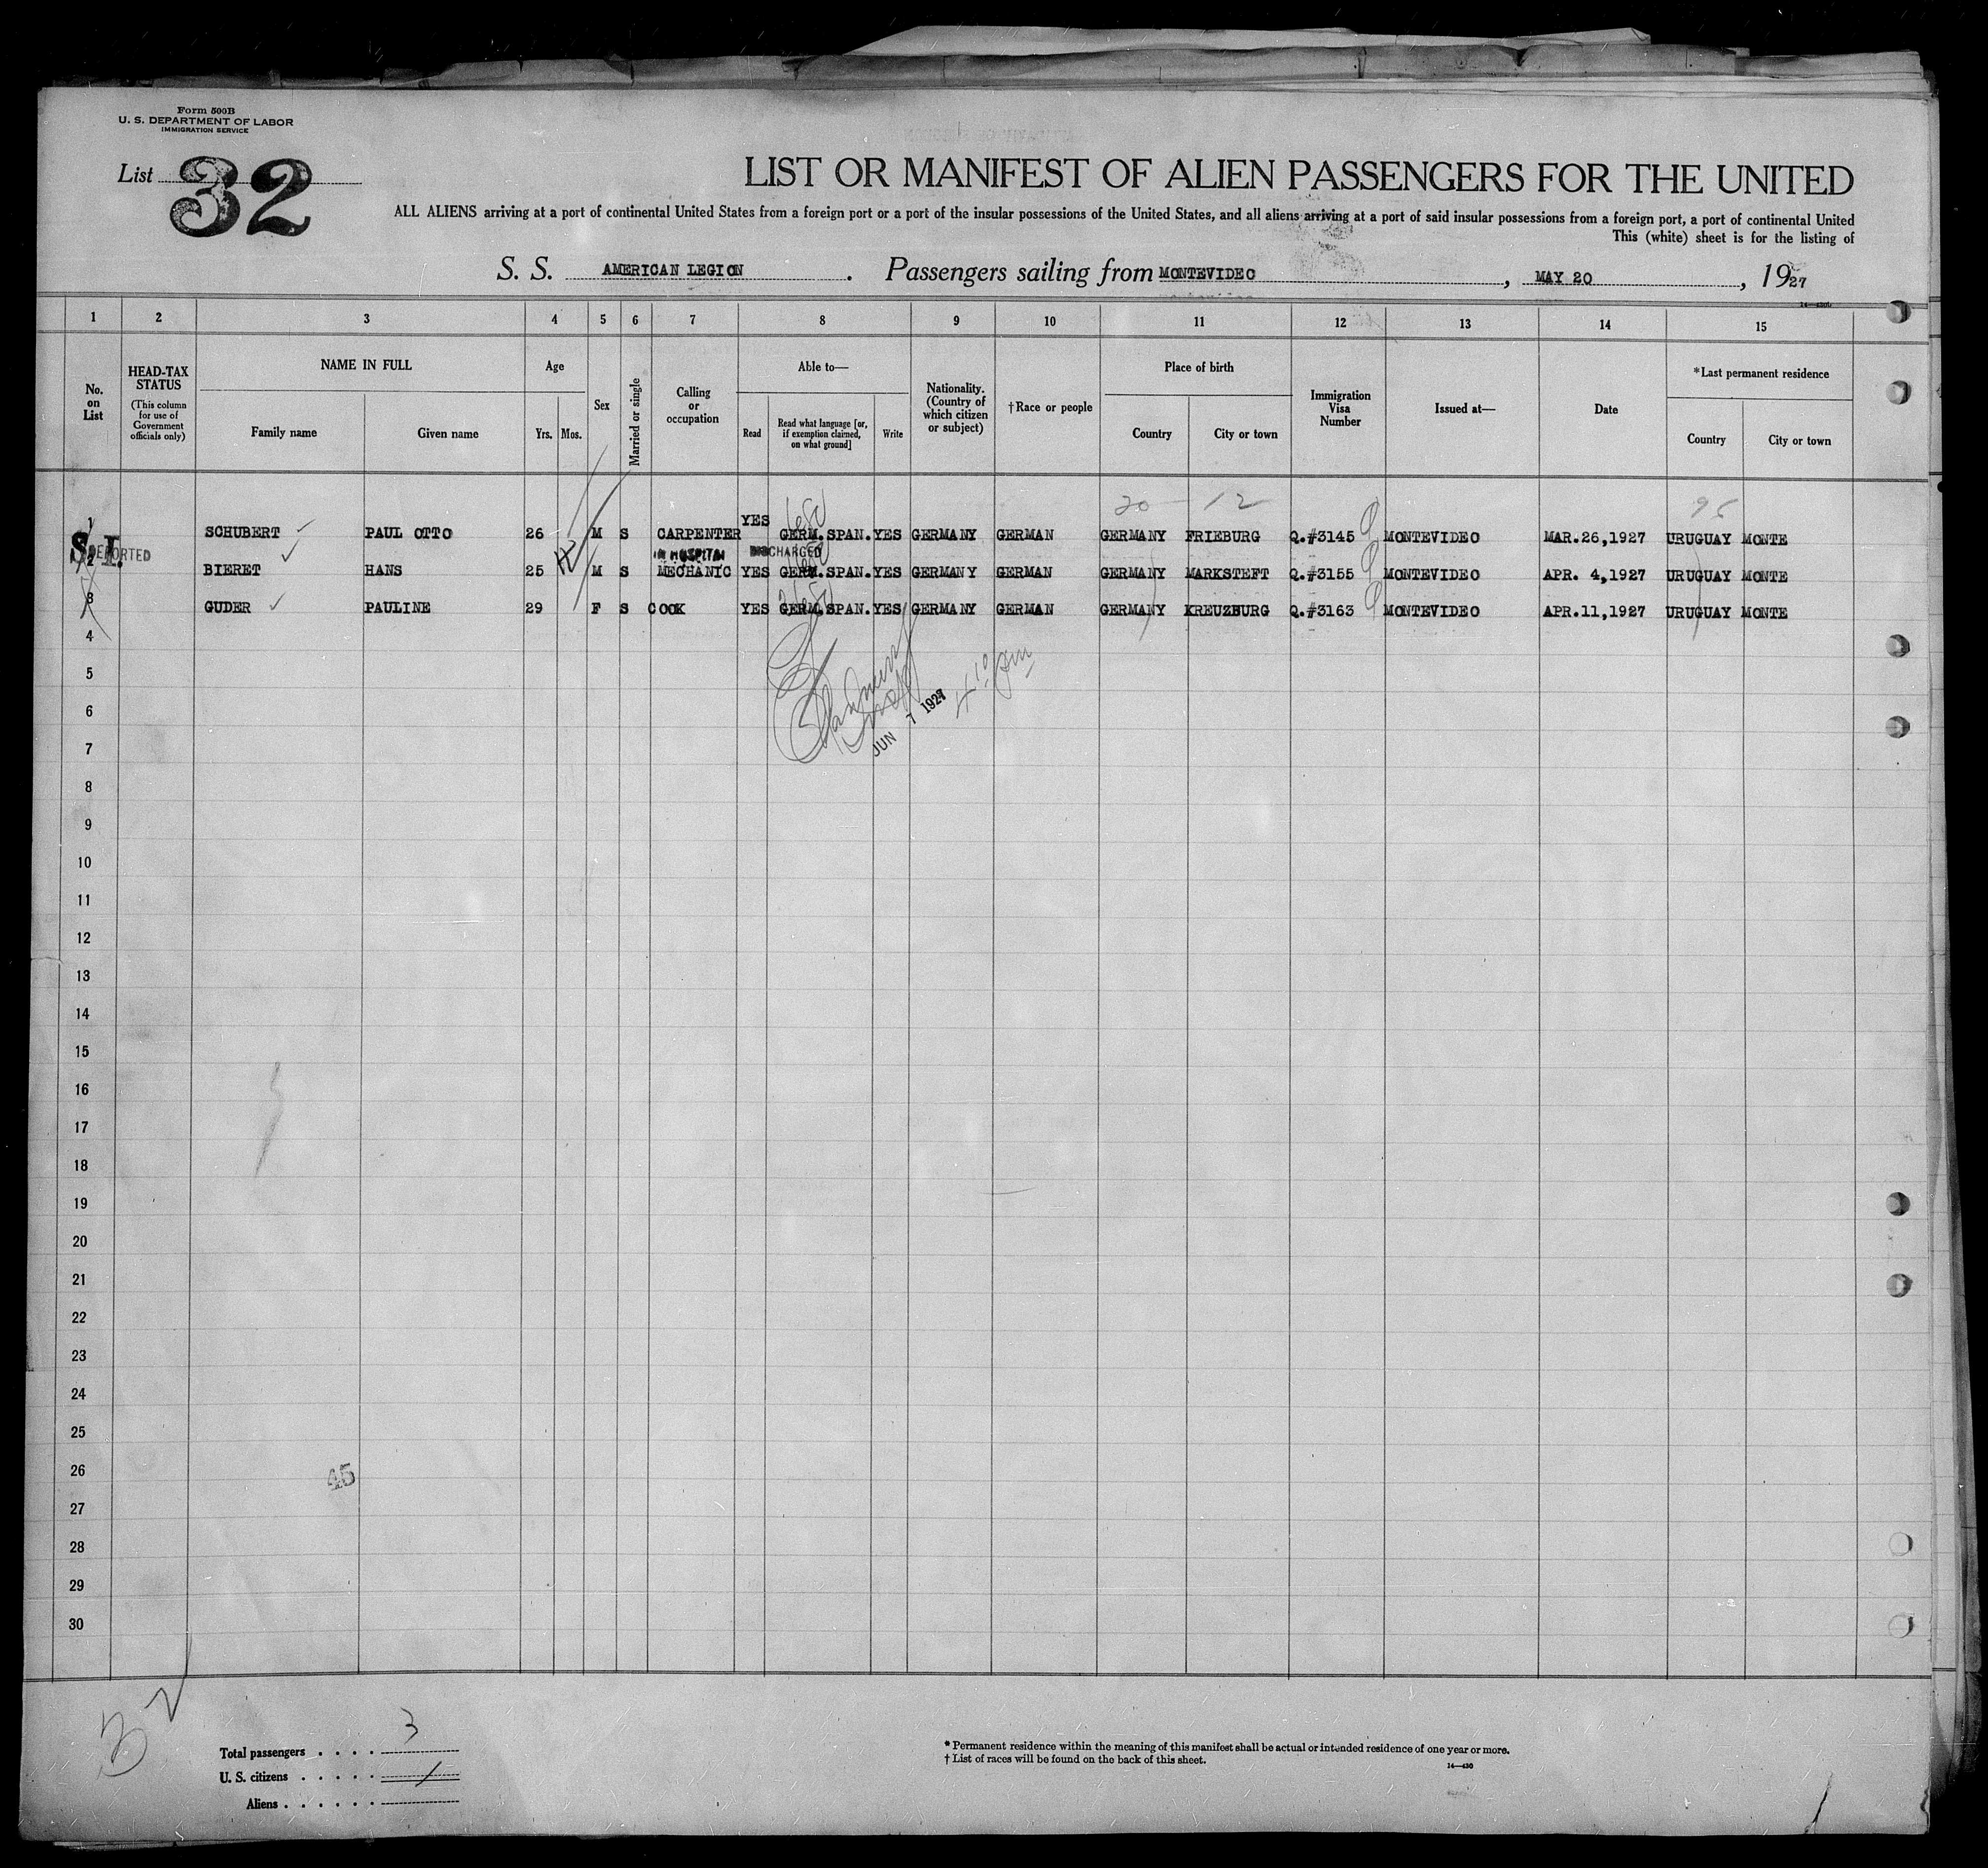 Form 500B
U. S. DEPARTMENT OF LABOR
IMMIGRATION SERVICE
List 32
LIST OR MANIFEST OF ALIEN PASSENGERS FOR THE UNITED
ALL ALIENS arriving at a port of continental United States from a foreign port or a port of the insular possessions of the United States, and all aliens arriving at a port of said insular possessions from a foreign port, a port of continental United
This (white) sheet is for the listing of
S. S. AMERICAN LEGION . Passengers sailing from MONTEVIDEO , MAY 20 , 1927
1 2 3 4 5 6 7 8 9 10 11 12 13 14 15
No. on List
HEAD-TAX STATUS
(This column for use of Government officials only)
NAME IN FULL
Family name Given name
Age
Yrs. Mos.
Sex
Married or single
Calling or occupation
Able to—
Read
Read what language [or, if exemption claimed, on what ground]
Write
Nationality. (Country of which citizen or subject)
†Race or people
Place of birth
Country City or town
Immigration Visa Number
Issued at—
Date
*Last permanent residence
Country City or town
20 12 95
1 SCHUBERT PAUL OTTO 26 M S CARPENTER YES GERM.SPAN. YES GERMANY GERMAN GERMANY FRIEBURG Q.#3145 MONTEVIDEO MAR.26,1927 URUGUAY MONTE
S.I. DEPORTED IN HOSPITAL DISCHARGED
2 BIERET HANS 25 M S MECHANIC YES GERM.SPAN. YES GERMANY GERMAN GERMANY MARKSTEFT Q.#3155 MONTEVIDEO APR. 4,1927 URUGUAY MONTE
3 GUDER PAULINE 29 F S COOK YES GERM.SPAN. YES GERMANY GERMAN GERMANY KREUZBURG Q.#3163 MONTEVIDEO APR.11,1927 URUGUAY MONTE
4
5
6
JUN 7 1927
7
8
9
10
11
12
13
14
15
16
17
18
19
20
21
22
23
24
25
26
45
27
28
29
30
32
Total passengers . . . . 3
U. S. citizens . . . . .
Aliens . . . . . .
* Permanent residence within the meaning of this manifest shall be actual or intended residence of one year or more.
† List of races will be found on the back of this sheet.
14—430